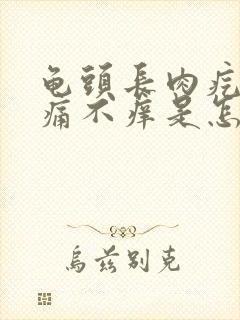 龟頭長肉疙
痛不癢是怎
烏兹别克